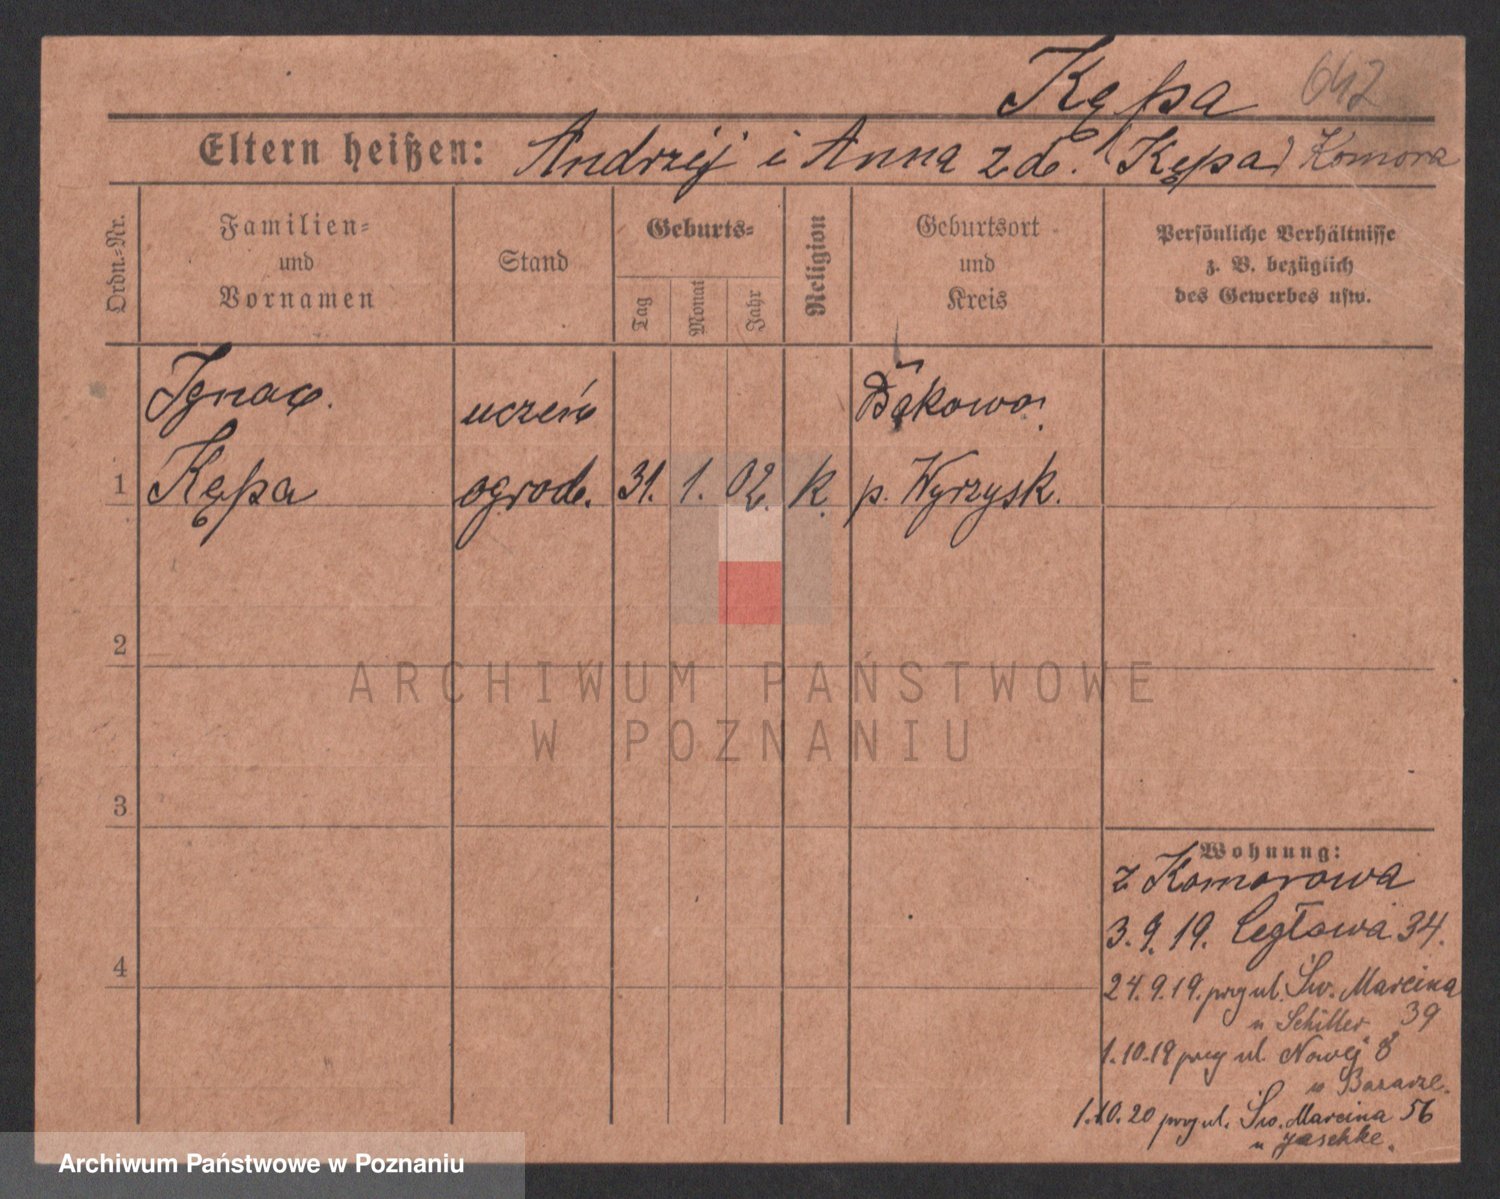 Kępa 642
Eltern heißen: Andrzéj i Anna zd. (Kępa) Komora
Ordn.-Nr.
Familien- und Vornamen
Stand
Geburts-
Tag
Monat
Jahr
Religion
Geburtsort und Kreis
Persönliche Verhältnisse
z. B. bezüglich
des Gewerbes usw.
Ignac. uczeń Bąkowo
1 Kępa ogrod. 31. 1. 02. k. p. Wyrzysk.
2
3
4
Wohnung:
z Komorowa
3.9.19. Cegłowa 34.
24.9.19. przy ul. Św. Marcina
u Schiller 39
1.10.19 przy ul. Nowéj 8
w Bazarze.
1.10.20 przy ul. Św. Marcina 56
u Jaschke.
ARCHIWUM PAŃSTWOWE
W POZNANIU
Archiwum Państwowe w Poznaniu